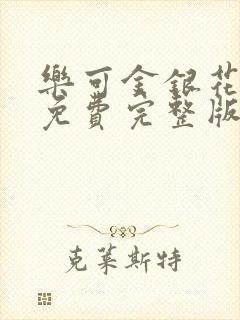 樂可金銀花
免費完整版
克萊斯特